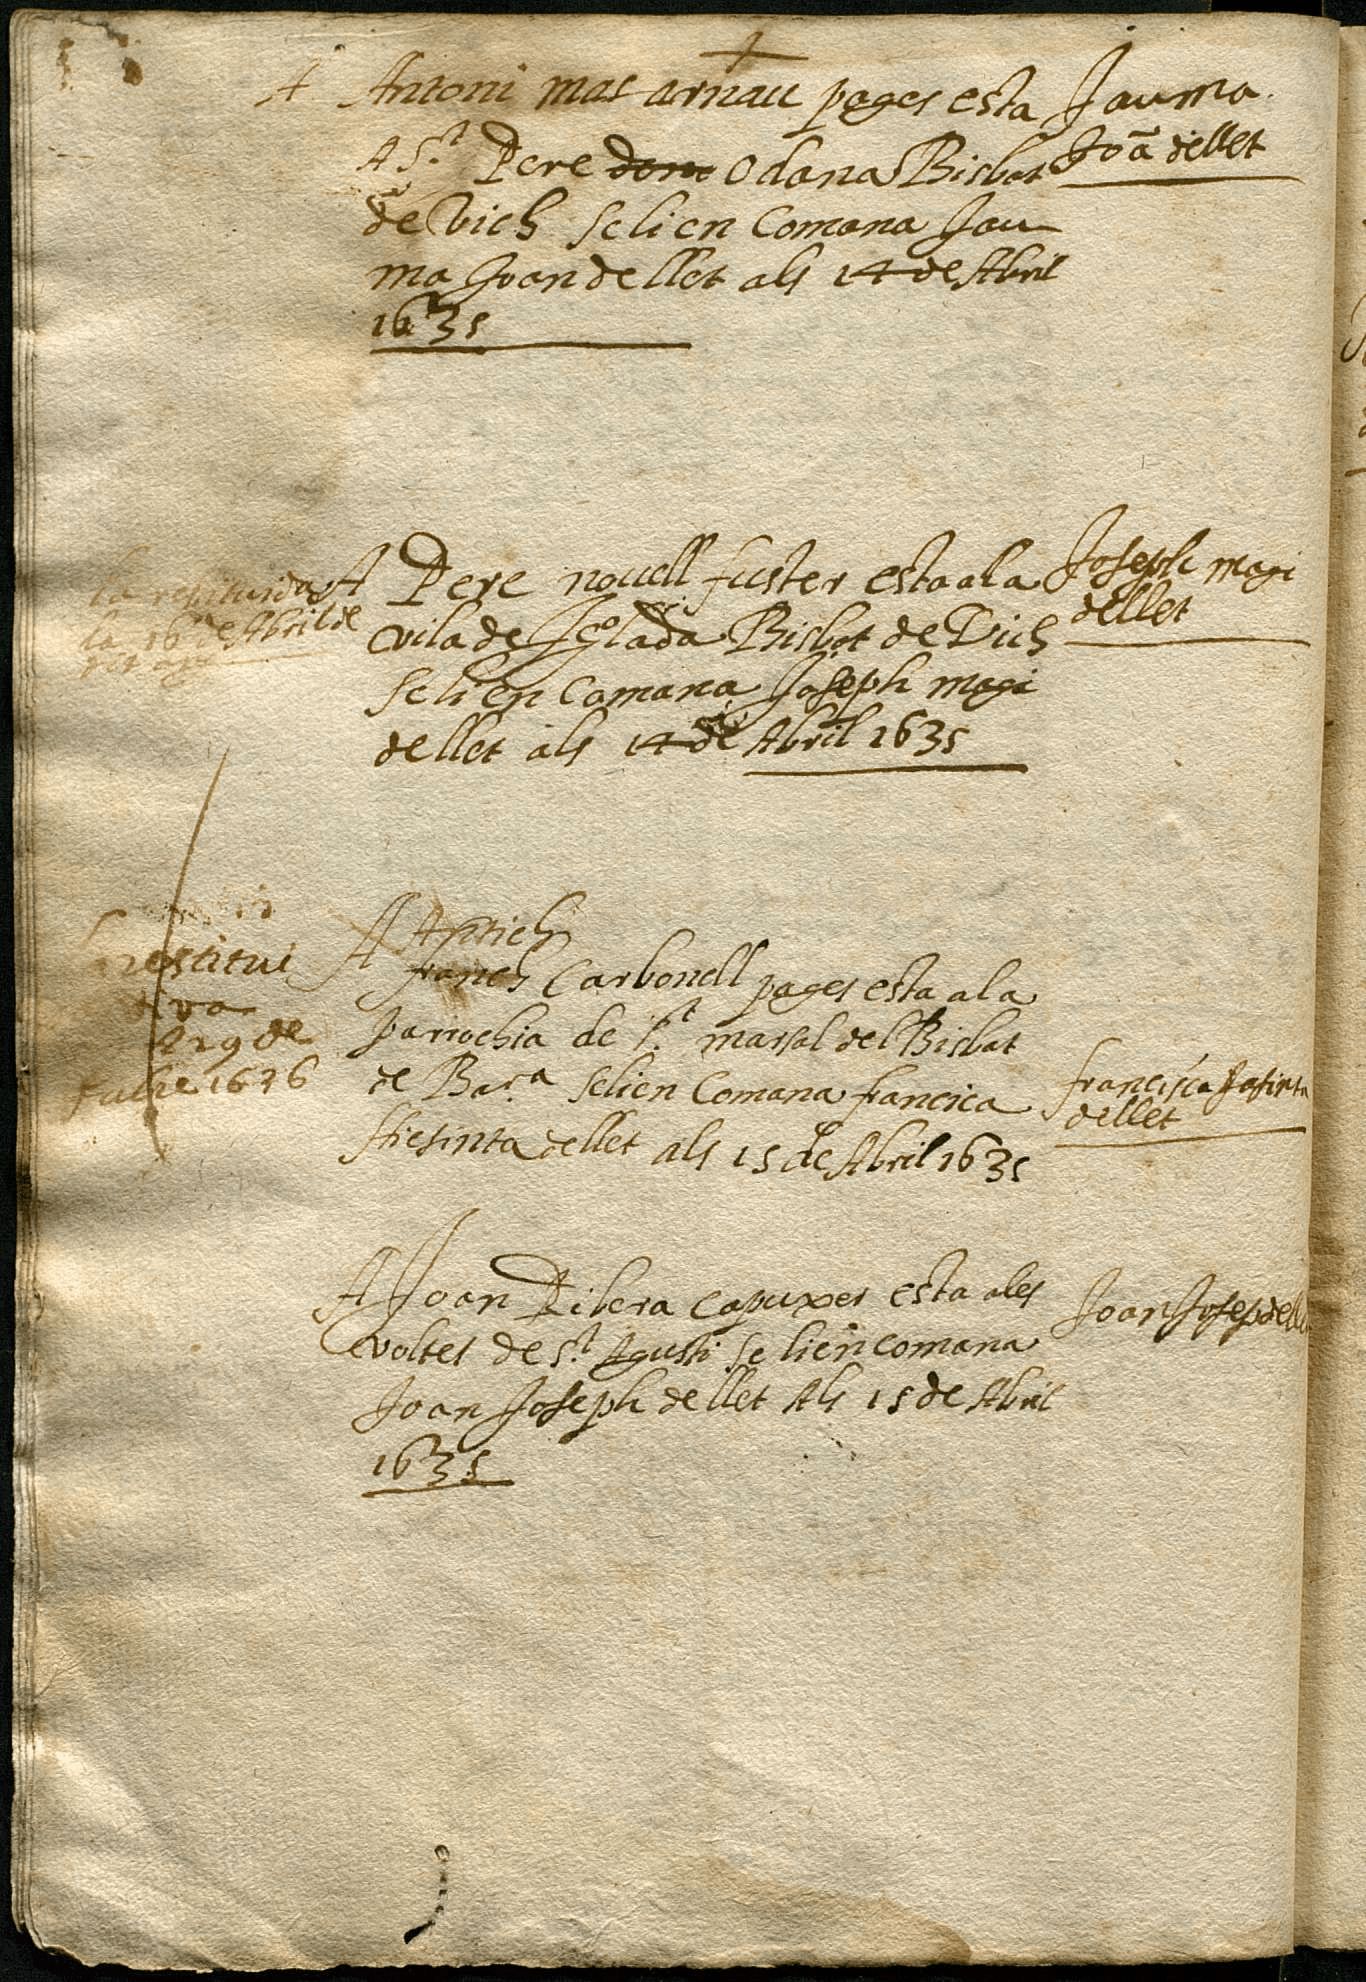 +
A Antoni mas arnau pages esta
A S.t Pere dona Odana Bisbat
de Vich Se li en Comana Jau
ma Joan de llet als 14 de Abril
1635
Jauma
Joã de llet
A Pere nouell fuster esta a la
vila de Jgolada Bisbat de Vich
Se li en Comana Joseph magi
de llet als 14 de Abril 1635
Joseph magi
de llet
la restituida
la 16 de Abril de
A Antich
franch Carbonell pages esta a la
parrochia de S.t marsal del Bisbat
de Bar.a Se li en Comana francisca
Hiesinta de llet als 15 de Abril 1635
francisca Jasinta
de llet
restitui
29 de
1636
A Joan Ribera capuxer esta a les
voltes de S.t Agusti Se li en comana
Joan Joseph de llet Als 15 de Abril
1635
Joan Josep de